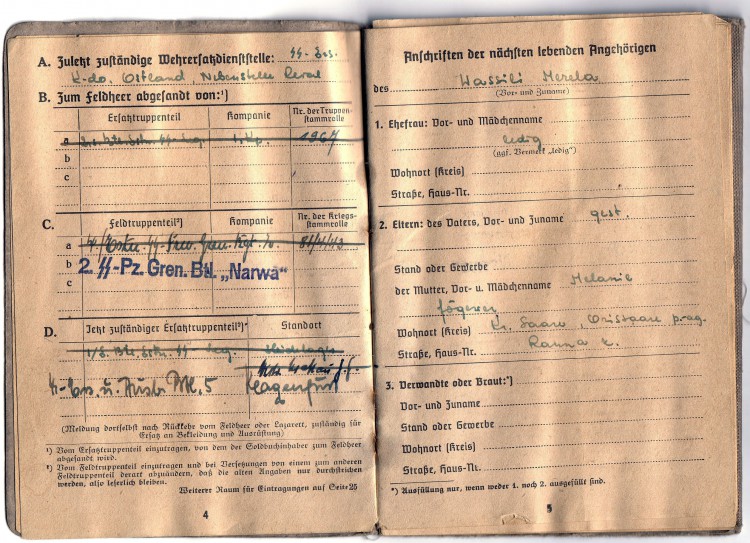 A. Zuletzt zuständige Wehrersatzdienststelle: SS-Ers.
K-do. Ostland, Nebenstelle Reval
B. Zum Feldheer abgesandt von:¹)
Ersatztruppenteil
Kompanie
Nr. der Truppen-
stammrolle
a
1967
b
c
C.
Feldtruppenteil²)
Kompanie
Nr. der Kriegs-
stammrolle
a
b
2. SS-Pz. Gren. Btl. „Narwa“
c
D.
Jetzt zuständiger Ersatztruppenteil²)*
Standort
SS- u. 5
Klagenfurt
(Meldung dortselbst nach Rückkehr vom Feldheer oder Lazarett, zuständig für
Ersatz an Bekleidung und Ausrüstung)
¹) Vom Ersatztruppenteil einzutragen, von dem der Soldbuchinhaber zum Feldheer
abgesandt wird.
²) Vom Feldtruppenteil einzutragen und bei Versetzungen von einem zum anderen
Feldtruppenteil derart abzuändern, daß die alten Angaben nur durchstrichen
werden, also leserlich bleiben.
Weiterer Raum für Eintragungen auf Seite 25
4
Anschriften der nächsten lebenden Angehörigen
des Wassili Merela
(Vor- und Zuname)
1. Ehefrau: Vor- und Mädchenname
ledig
(ggf. Vermerk „ledig“)
Wohnort (Kreis)
Straße, Haus-Nr.
2. Eltern: des Vaters, Vor- und Zuname gest.
Stand oder Gewerbe
der Mutter, Vor- u. Mädchenname Melanie
Jögewer
Wohnort (Kreis) Kr. Saare, Orissaare
Straße, Haus-Nr. Ranna
3. Verwandte oder Braut:*)
Vor- und Zuname
Stand oder Gewerbe
Wohnort (Kreis)
Straße, Haus-Nr.
*) Ausfüllung nur, wenn weder 1. noch 2. ausgefüllt sind.
5